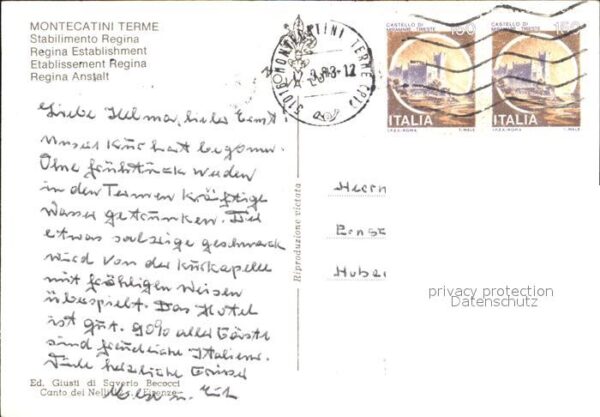 MONTECATINI TERME
Stabilimento Regina
Regina Establishment
Etablissement Regina
Regina Anstalt
MONTECATINI TERME (PT)
51016
CASTELLO DI
MIRAMARE·TRIESTE
150
ITALIA
I.P.Z.S.-ROMA
CASTELLO DI
MIRAMARE·TRIESTE
150
ITALIA
I.P.Z.S.-ROMA
Liebe Helma, lieber Ernst
Unser Kur hat begonnen.
Ohne Frühstück werden
in den Termen kräftige
Wasser getrunken. Der
etwas salzige Geschmack
wird von der Kurkapelle
mit fröhligen Weisen
überspielt. Das Hotel
ist gut. 90% aller Gäste
sind freundliche Italiener.
Viele herzliche Grüsse
u.
Riproduzione vietata
Herrn
Ernst
Huber
privacy protection
Datenschutz
Ed. Giusti di Saverio Becocci
Canto dei Nelli Firenze